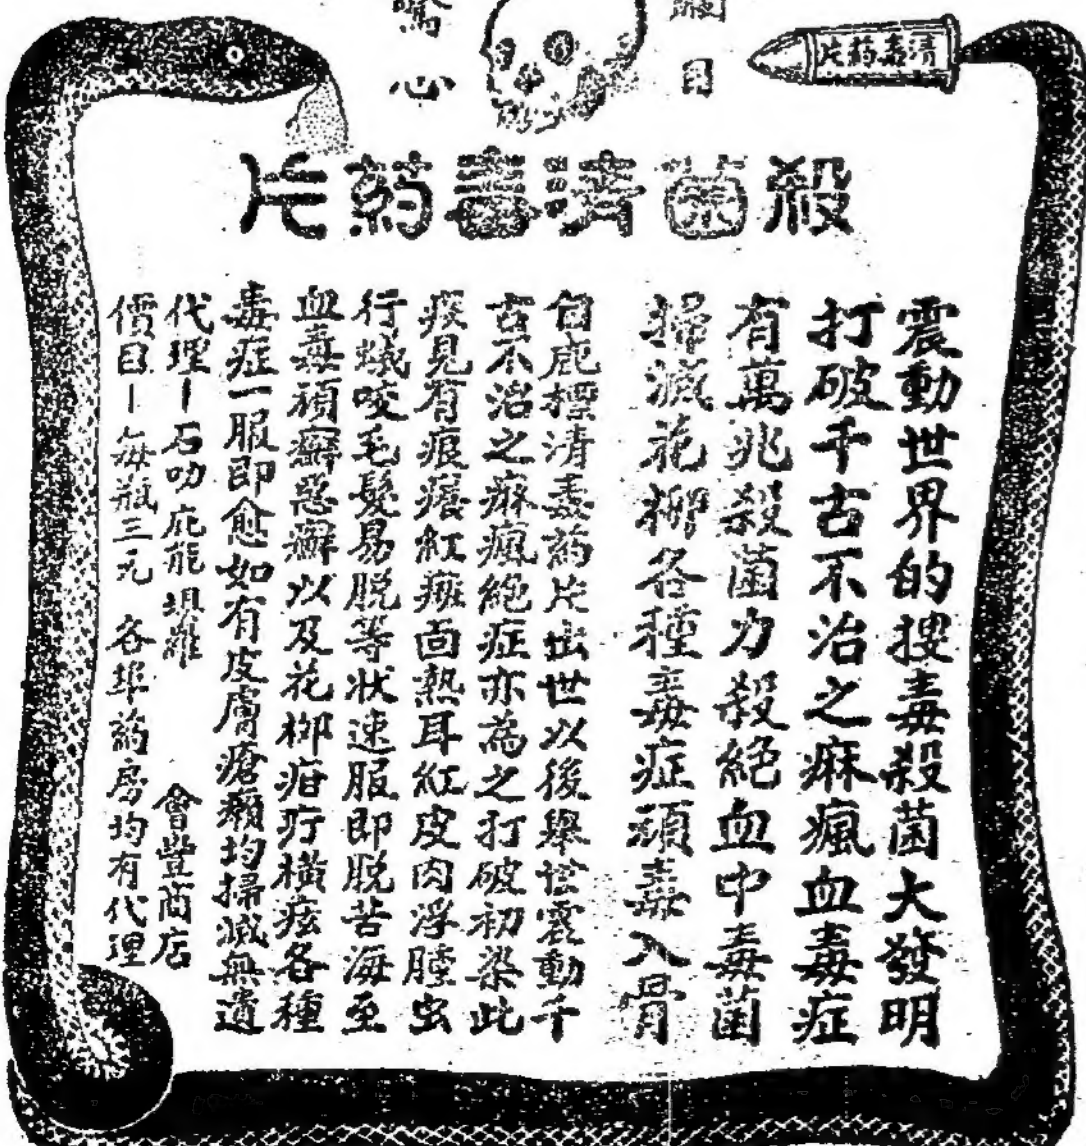 目
心
清毒药片
殺菌清毒药片
震動世界的搜毒殺菌大發明
打破千古不治之麻瘋血毒症
有萬兆殺菌力殺絕血中毒菌
掃滅花柳各種毒症頑毒入骨
自鹿標清毒药片出世以後舉世震動千
古不治之麻瘋絕症亦為之打破初染此
疾見有痕癢紅斑面熱耳紅皮肉浮腫虫
行蟻咬毛髮易脱等狀速服即脱苦海至
血毒頑癬惡癬以及花柳疳疔橫痃各種
毒症一服即愈如有皮膚瘡癩均掃滅無遺
代理－石叻庇能埧羅 會豐商店
價目－每瓶三元 各埠葯房均有代理